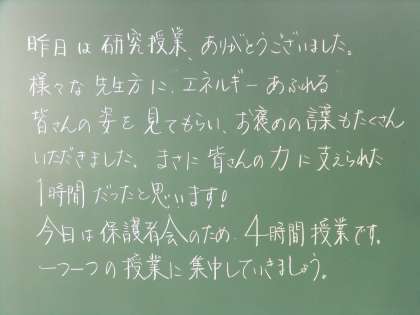 昨日は研究授業、ありがとうございました。
様々な先生方に、エネルギーあふれる
皆さんの姿を見てもらい、お褒めの言葉もたくさん
いただきました。まさに皆さんの力に支えられた
1時間だったと思います!
今日は保護者会のため、4時間授業です。
一つ一つの授業に集中していきましょう。